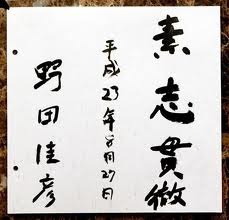 素志貫徹
平成23年8月27日
野田佳彦